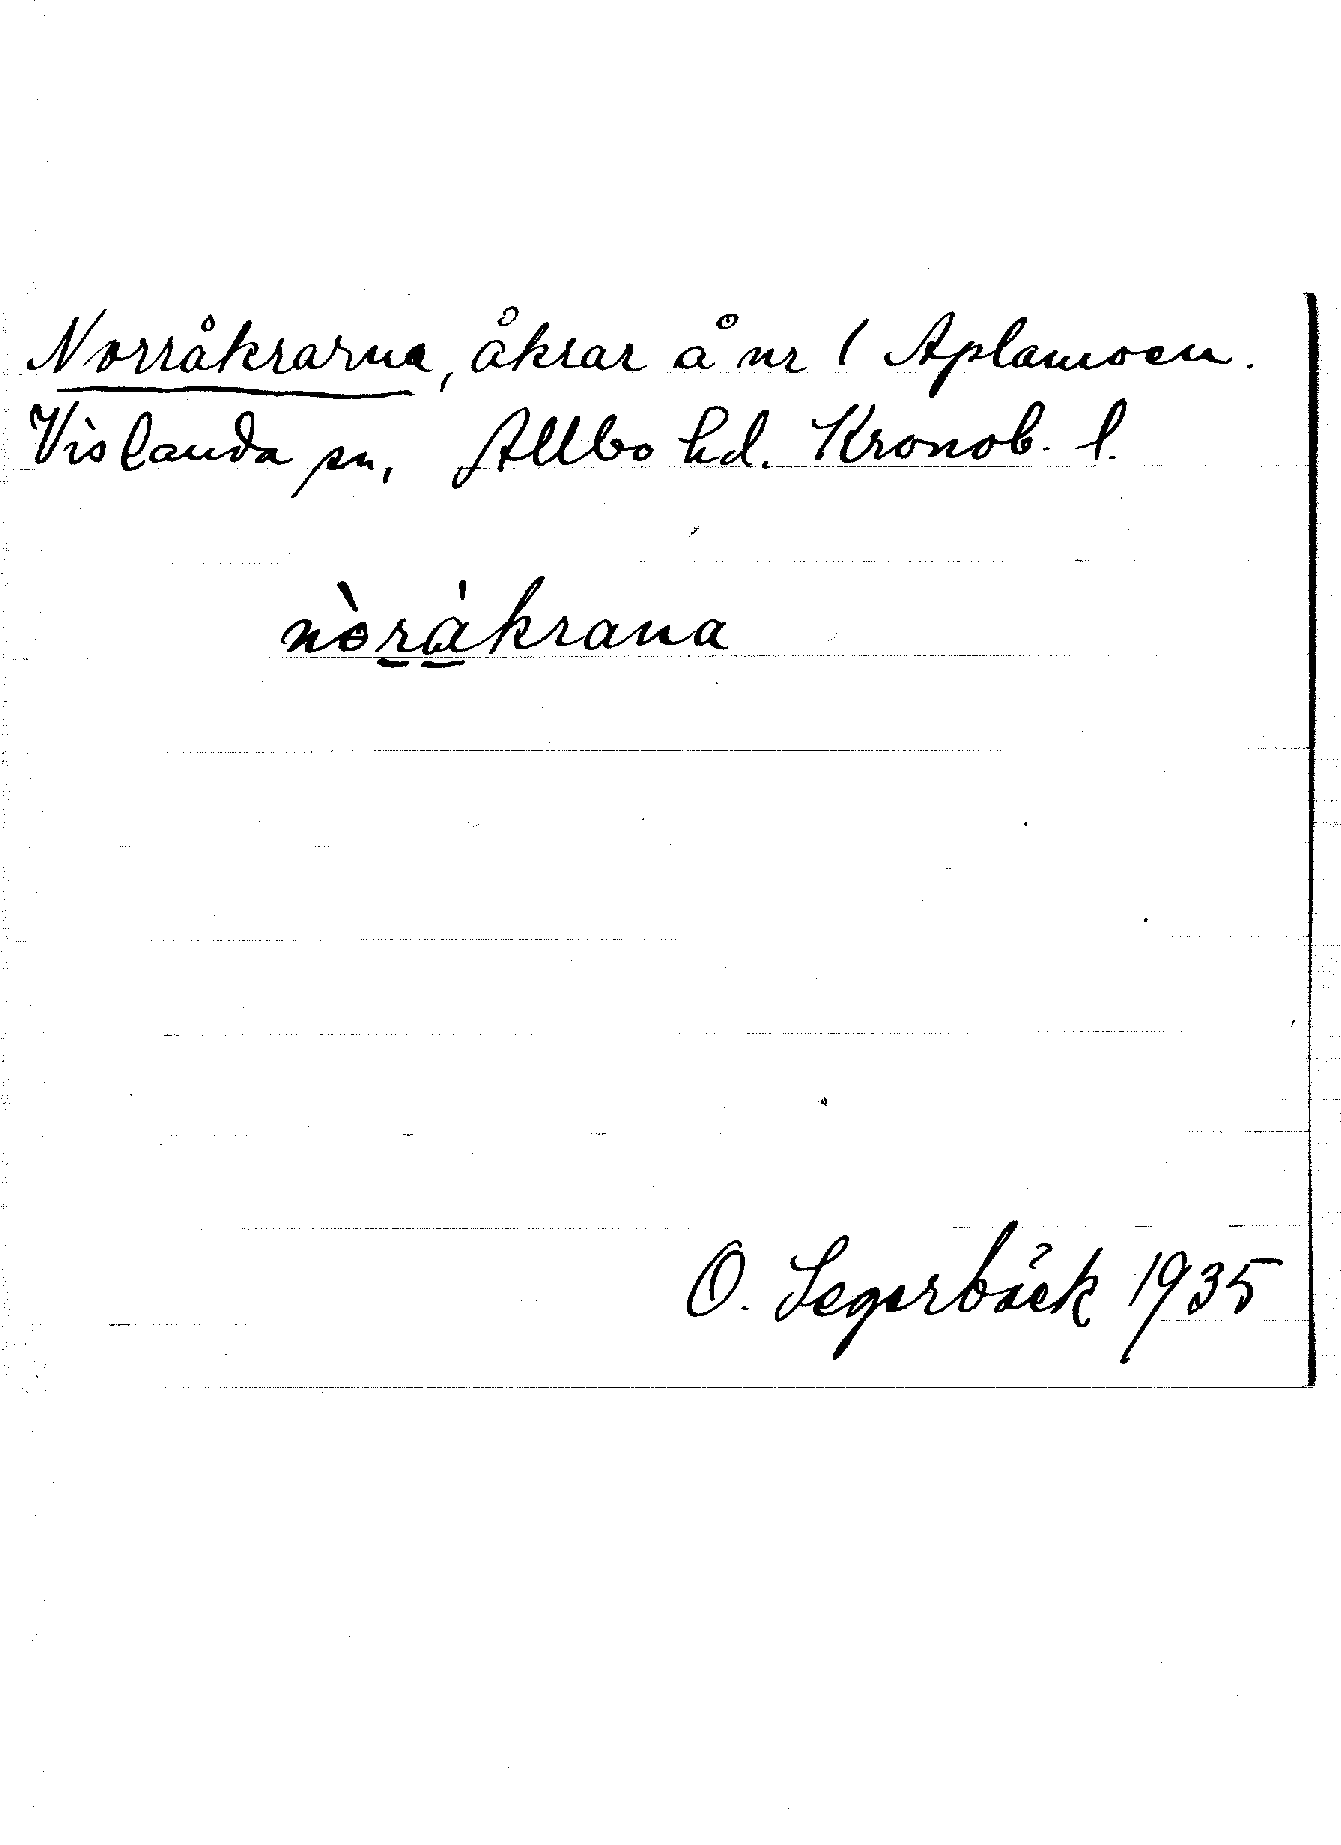 Norråkrarna, åkrar å nr 1 Aplamoen.
Vislanda sn, Allbo hd. Kronob. l.
nòràkrana
O. Segerbäck 1935